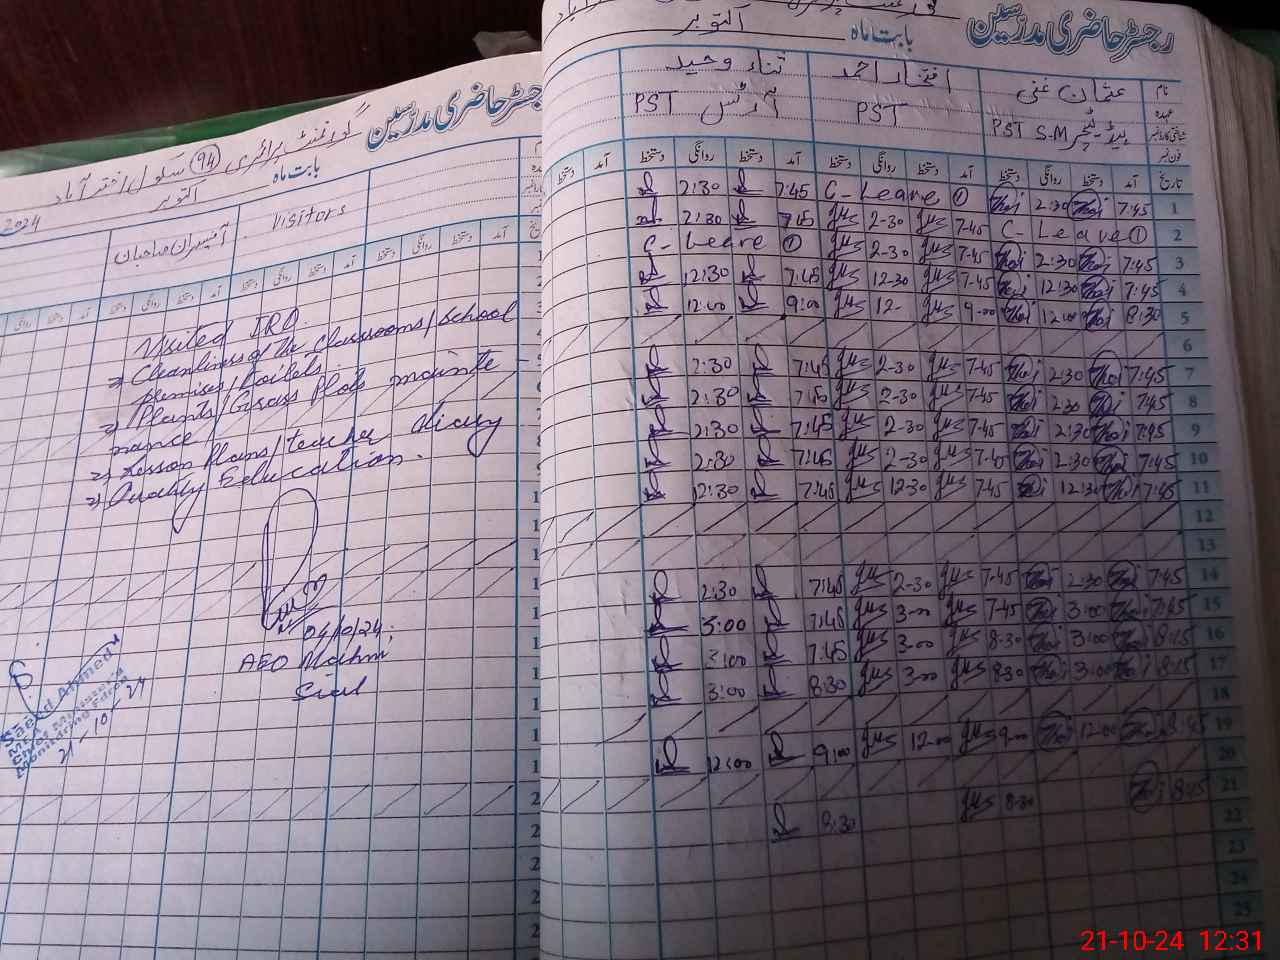 رجسٹر حاضری مدرسین
گورنمنٹ پرائمری سکول
94
بابت ماہ
اکتوبر
2024
Visitors
آفیسران صاحبان
آمد دستخط روانگی دستخط آمد دستخط روانگی دستخط
Visited IRO.
=> Cleanliness of the classrooms/School
premises/toilets.
=> Plants/Grass Plots mainte-
nance/
=> Lesson Plans/teacher diary
=> Quality Education.
04/10/24;
AEO Mahni
Sial
Saeed Ahmed
MEA
Chief Minister's
Monitoring Force
21-10-24
رجسٹر حاضری مدرسین
بابت ماہ
اکتوبر
نام عثمان غنی افتخار احمد ثناء وحید
عہدہ PST S.M ہیڈ ٹیچر PST PST آرٹس
شناختی کارڈ نمبر
فون نمبر
تاریخ آمد دستخط روانگی دستخط آمد دستخط روانگی دستخط آمد دستخط روانگی دستخط آمد دستخط
1 7:45 2:30 C-Leave ① 7:45 2:30
2 C-Leave ① 7-45 2-30 7:45 2:30
3 7:45 2:30 7-45 2-30 C-Leave ①
4 7:45 12:30 7-45 12-30 7:45 12:30
5 8:30 12:00 9-00 12- 9:00 12:00
6
7 7:45 2:30 7-45 2-30 7:45 2:30
8 7:45 2:30 7-45 2-30 7:45 2:30
9 7:45 2:30 7-45 2-30 7:45 2:30
10 7:45 2:30 7-45 2-30 7:45 2:30
11 7:45 12:30 7-45 12-30 7:45 12:30
12
13
14 7:45 2:30 7-45 2-30 7:45 2:30
15 7:45 3:00 7-45 3-00 7:45 3:00
16 8:15 3:00 8-30 3-00 7:45 3:00
17 8:15 3:00 8-30 3-00 8:30 3:00
18
19 8:45 12:00 9-00 12-00 9:00 12:00
20
21 8:15 8-30 8:30
22
23
24
25
21-10-24 12:31